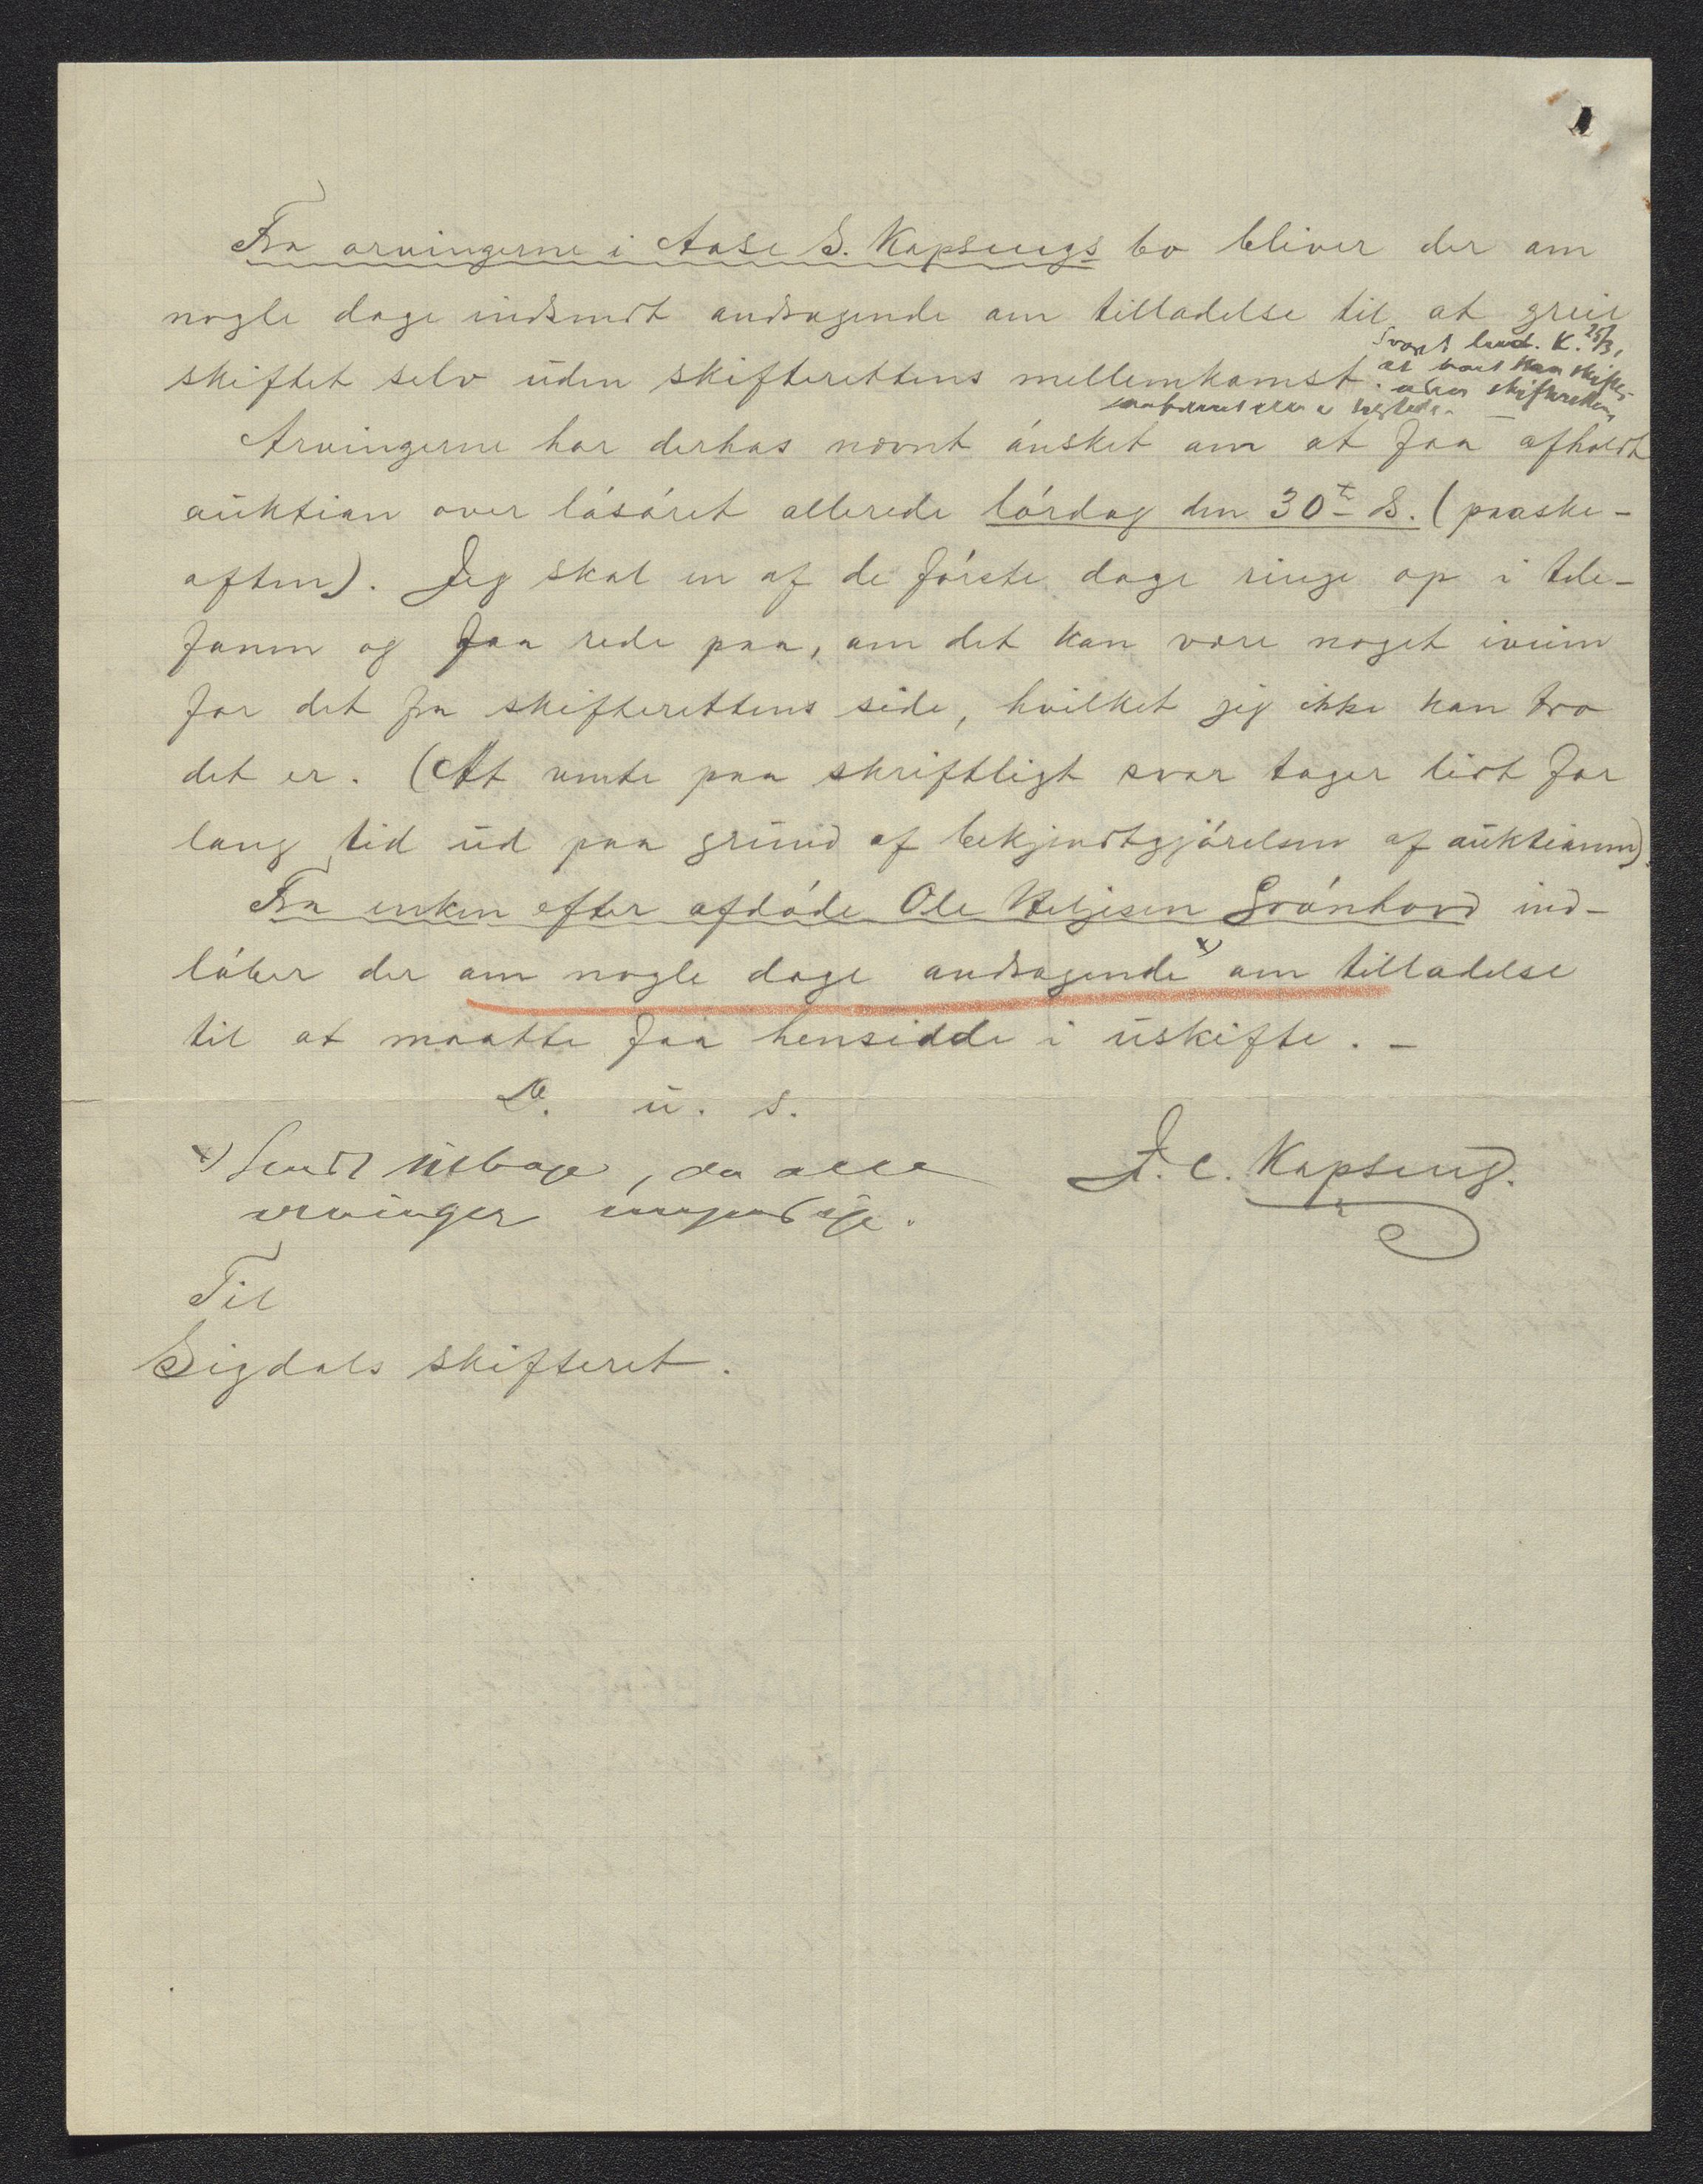 Fra arvingerne i Aase S. Kapsengs bo bliver der om
nogle dage indsendt andragende om tilladelse til at greie
skiftet selv uden skifterettens mellemkomst.
Svaret lensd. K. 25/3,
at boet kan skiftes
uden skifterettens
Arvingerne har derhos nævnt ønsket om at faa afholdt
auktion over løsøret allerede lørdag den 30te ds. (paaske-
aften). Jeg skal en af de første dage ringe op i tele-
fonen og faa rede paa, om det kan være noget iveien
for det fra skifterettens side, hvilket jeg ikke kan tro
det er. (At vente paa skriftligt svar tager lidt for
lang tid ud paa grund af bekjendtgjørelsen af auktionen).
Fra enken efter afdøde Ole Helgesen Grønhovd ind-
løber der om nogle dage andragende x) om tilladelse
til at maatte faa hensidde i uskifte. -
D. u. s.
x) Sendt tilbage, da alle
arvinger er myndige.
A. C. Kapseng.
Til
Sigdals skifteret.